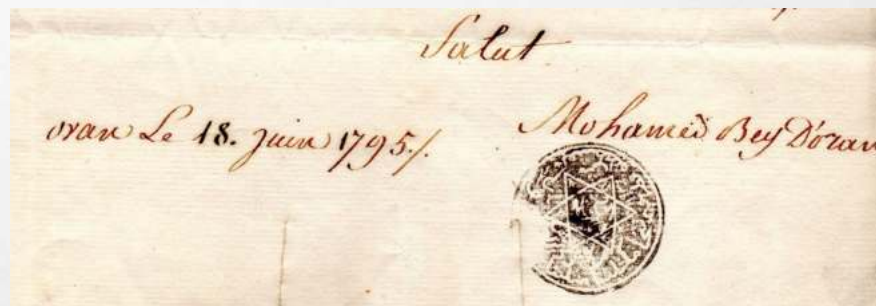 Salut
oran Le 18. juin 1795./.
Mohamed Bey D'oran